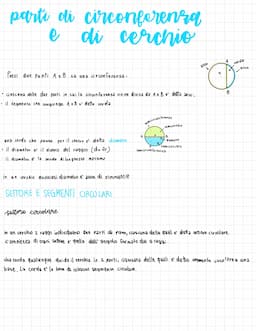 parti di circonferenza
e di cerchio
presi due punti A e B su una circonferenza:
• ciascuna delle due parti in cui la circonferenza viene divisa da A e B e' detta arco,
• il segmento che congiunge A e B e' detto corda
una corda che passa per il centro e' detta diametro
• il diametro e' il doppio del raggio (d=2r)
il diametro e' la corda di lunghezza massima
in un cerchio qualsiasi diametro e' asse di simmetria
SETTORE E SEGMENTI CIRCOLARI
settore circolare
in un cerchio 2 raggi individuano due parti di piano, ciascuna delle quali e' detta settore circolare.
L'ampiezza di ogni settore e' quella dell'angolo formato dai 2 raggi
una corda qualunque divide il cerchio in 2 parti, ciascuna delle quali e' detta segmento circolare a una
base. La corda e' la base di ciascun segmento circolare.